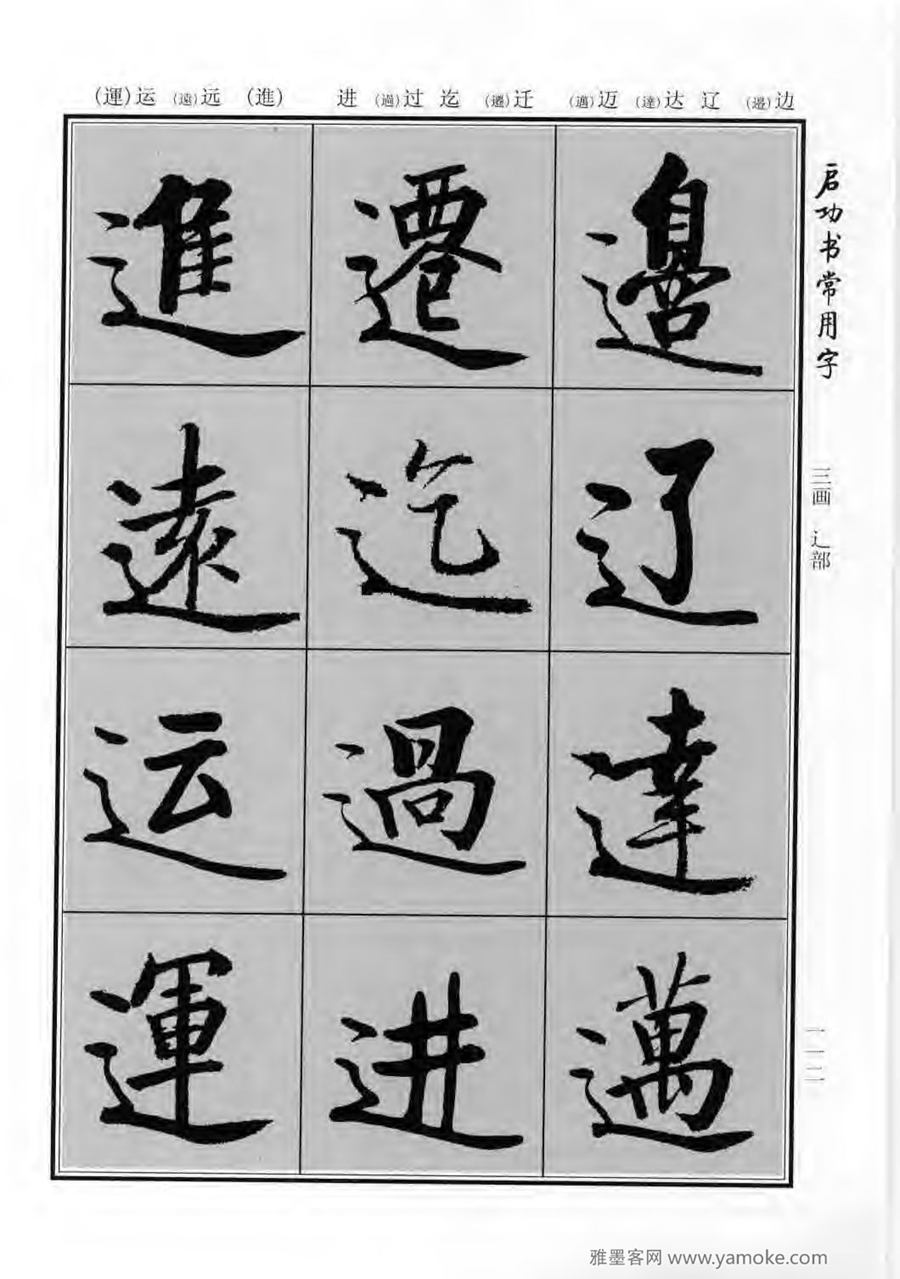 边(邊) 辽 达(達) 迈(邁) 迁(遷) 迄 过(過) 进 (進) 远(遠) 运(運)
启功书常用字
三画 辶部
一一二
邊辽達邁
遷迄過进
進遠运運
雅墨客网 www.yamoke.com